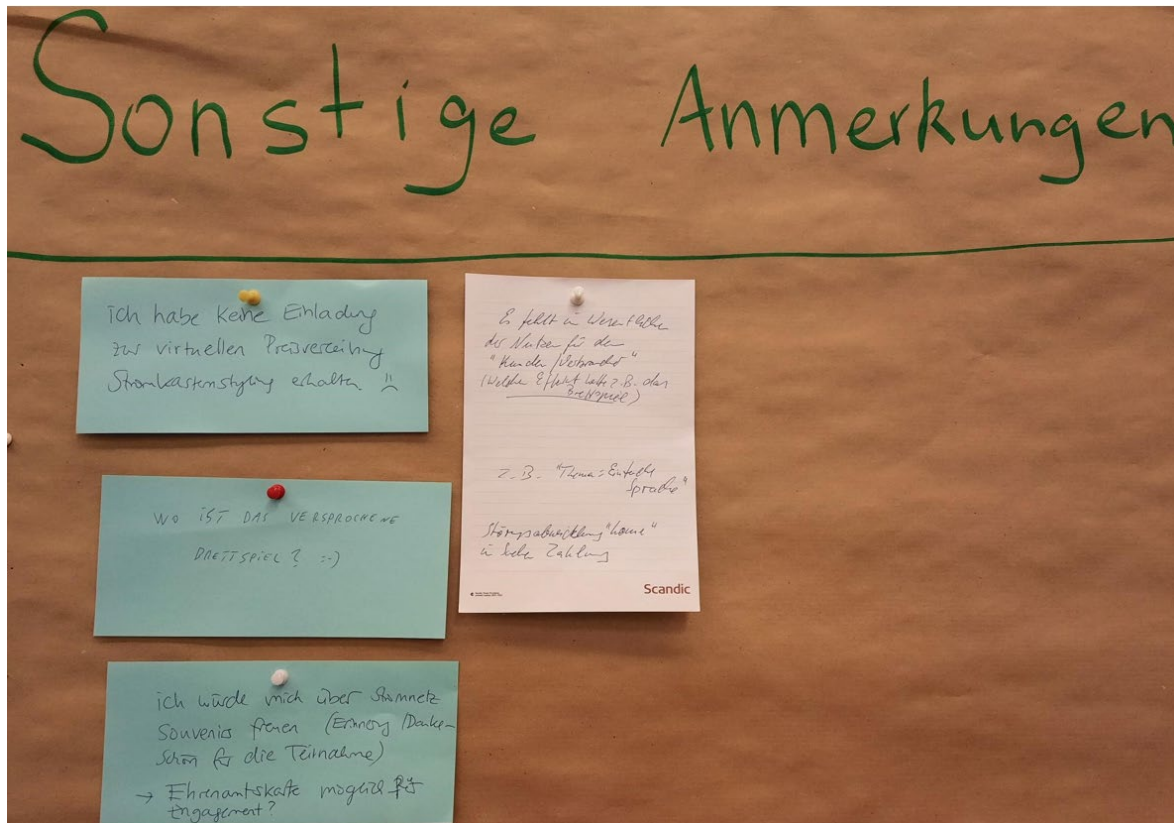 Sonstige Anmerkungen
ich habe keine Einladung
zur virtuellen Preisverleihung
Stromkastenstyling erhalten ☹
WO IST DAS VERSPROCHENE
BRETTSPIEL? :-)
ich würde mich über Stromnetz
Souvenirs freuen (Erinnerung/Danke-
schön für die Teilnahme)
→ Ehrenamtskarte möglich für
Engagement?
Es fehlt im Wesentlichen
der Nutzen für den
"Kunden/Verbraucher"
(Welchen Effekt hatte z.B. das
Brettspiel)
z.B. "Thema: Einfache
Sprache"
in Zahlung
Scandic